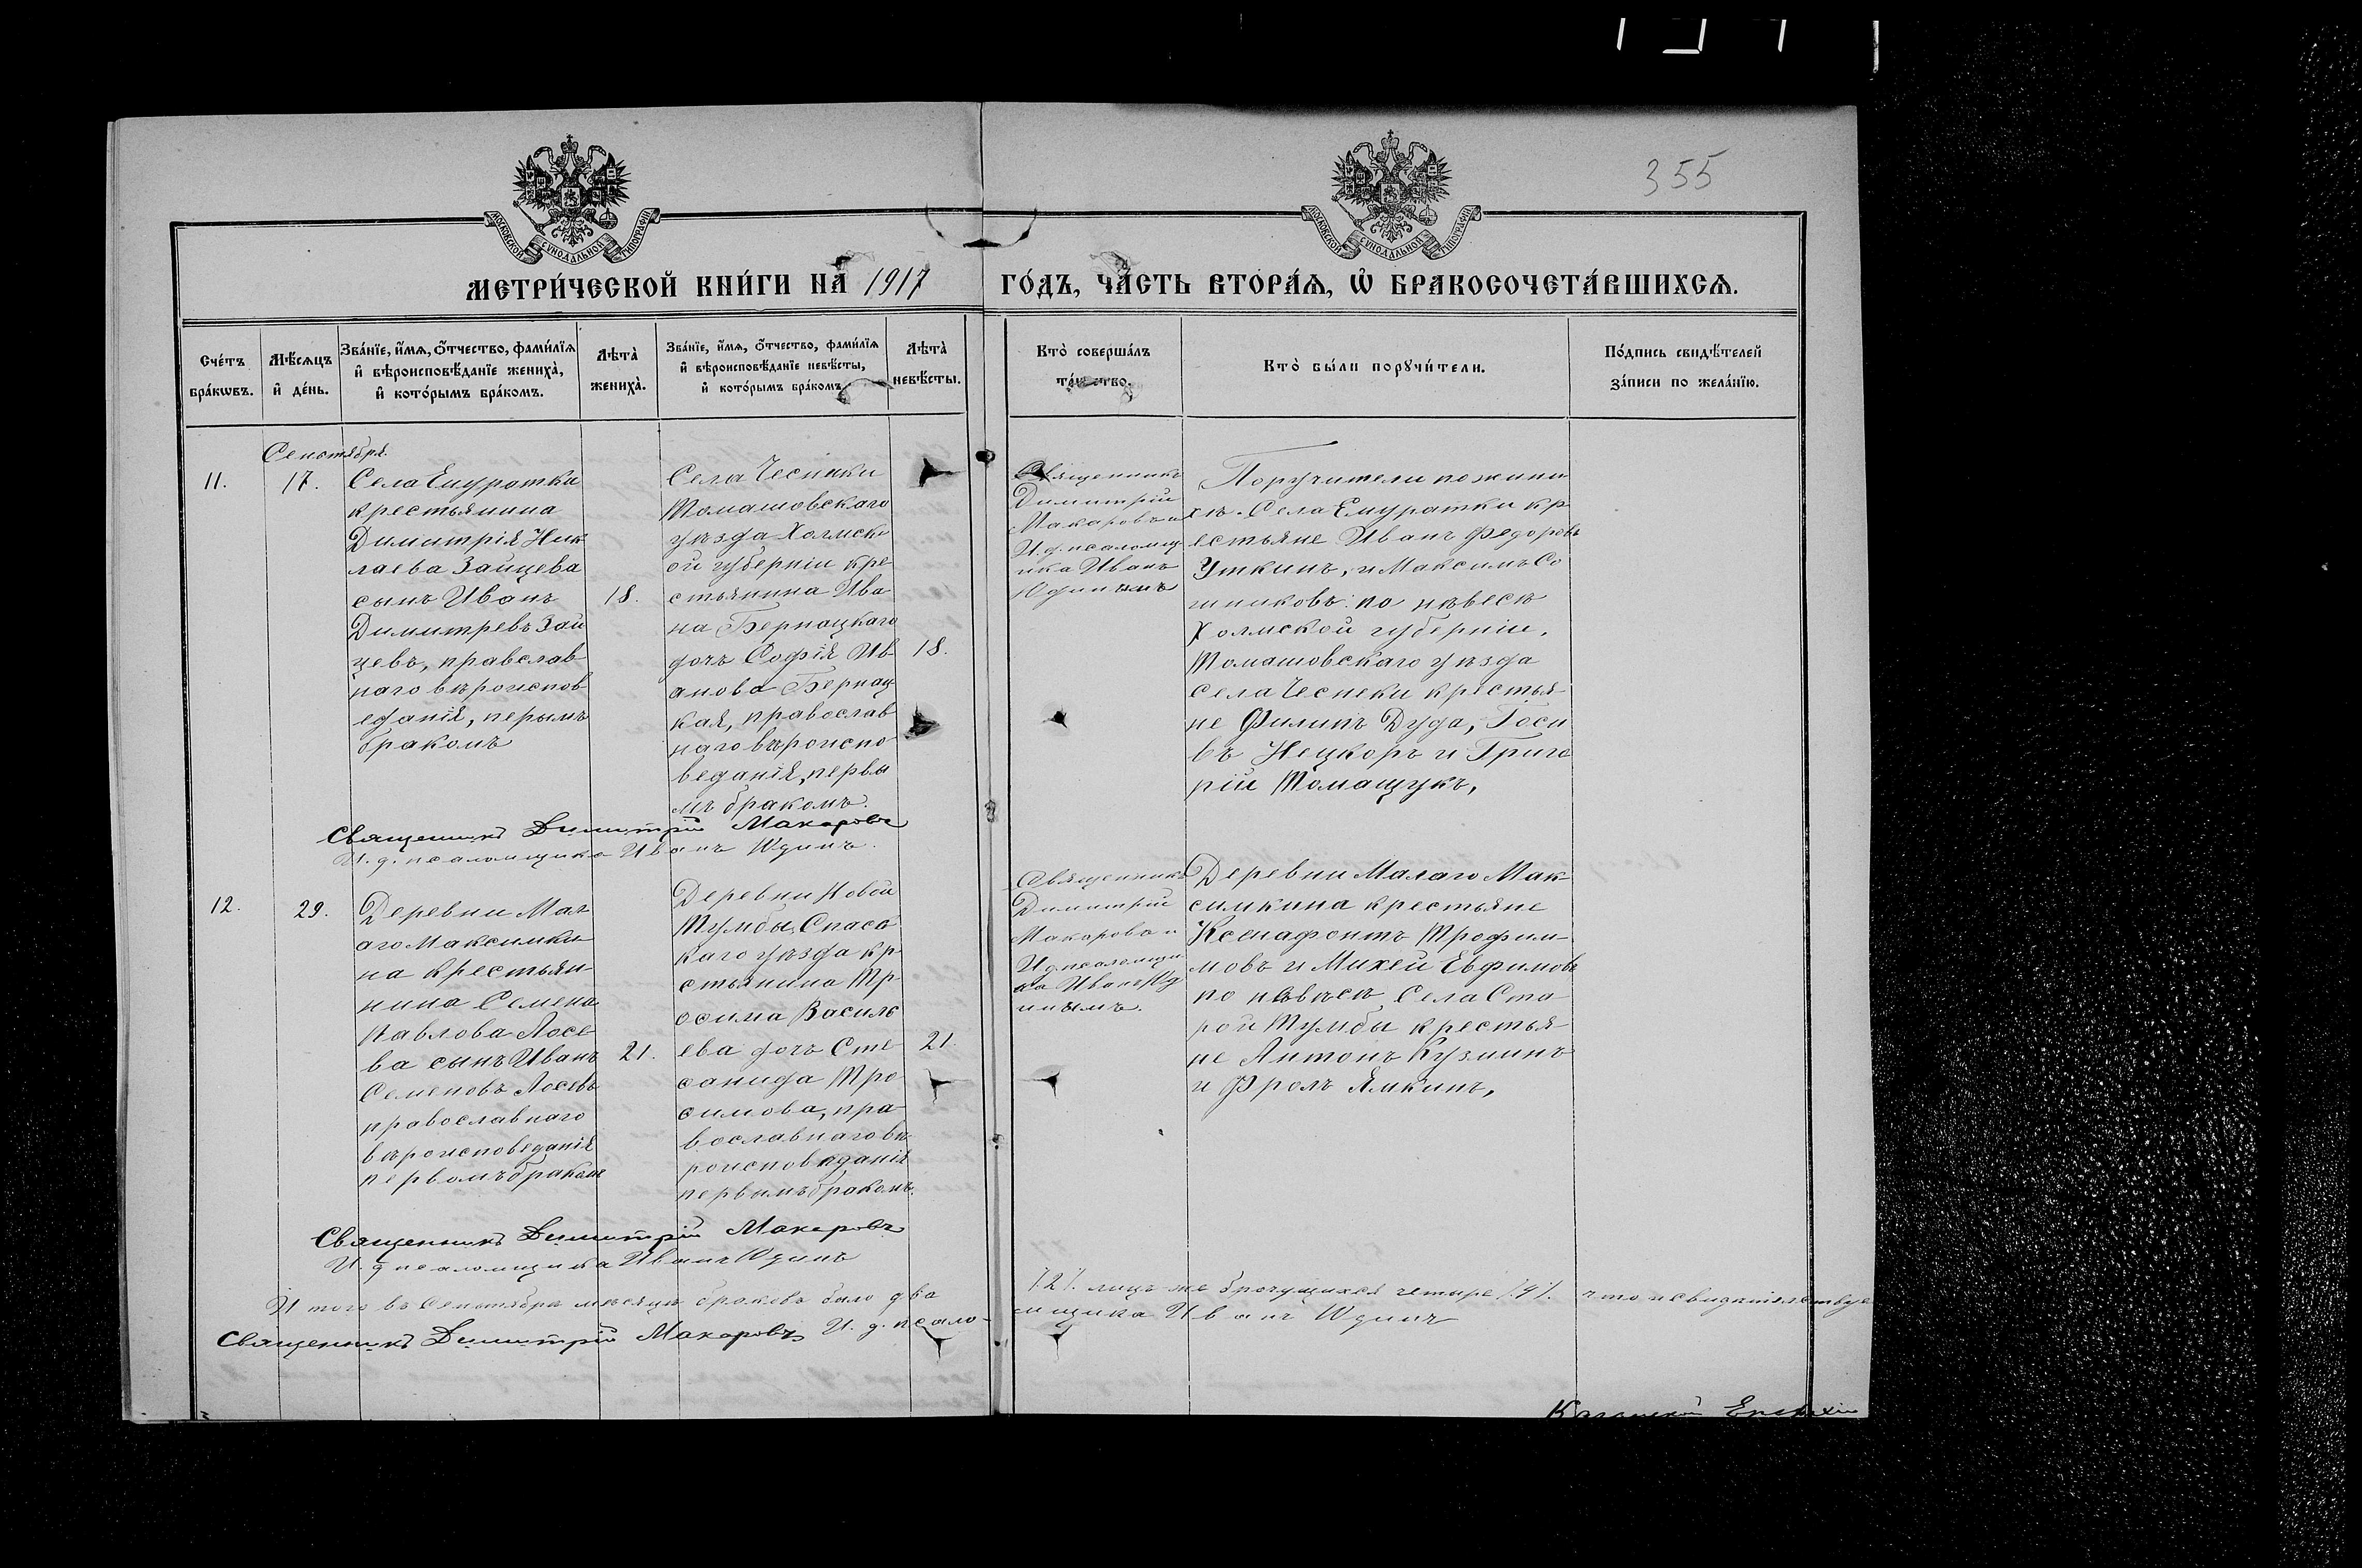 355
МОСКОВСКОЙ СУНОДАЛЬНОЙ ТИПОГРАФІИ
МОСКОВСКОЙ СУНОДАЛЬНОЙ ТИПОГРАФІИ
МЕТРИ́ЧЕСКОЙ КНИ́ГИ НА 1917
ГО́ДЪ, ЧА́СТЬ ВТОРА́Ѧ, Ѽ БРАКОСОЧЕТА́ВШИХСѦ.
Сче́тъ бра́кѡвъ.
Мѣ́сѧцъ и҆ де́нь.
Зва́нїе, и҆́мѧ, ѻ҆́тчество, фами́лїѧ
и҆ вѣроисповѣ́данїе жениха̀,
и҆ кото́рымъ бра́комъ.
Лѣта̀
жениха̀.
Зва́нїе, и҆́мѧ, ѻ҆́тчество, фами́лїѧ
и҆ вѣроисповѣ́данїе невѣ́сты,
и҆ кото́рымъ бра́комъ.
Лѣта̀
невѣ́сты.
Кто̀ соверша́лъ
та́инство.
Кто̀ бы́ли порꙋчи́тели.
По́дпись свидѣ́телей
за́писи по жела́нїю.
Сентября
11.
17.
Села Емуратки
крестьянина
Димитрія Ник
лаева Зайцева
сынъ Иванъ
Димитревъ Зай
цевъ, правслав
наго вѣроиспов
еданія, перымъ
бракомъ
18.
Села Чесники
Томашовскаго
уѣзда Холмск
ой губерніи кре
стьянина Ива
на Бернацкаго
дочь Софія Ив
анова Бернац
кая, православ
наго вѣроиспо
веданія, первы
мъ бракомъ.
18.
Священникъ
Димитрій
Макаровъ и
И. д. псаломщ
ика Иванъ
Юдинымъ
Поручители по жини
хѣ. Села Емуратки кр
естьяне Иванъ Федоровъ
Уткинъ, и Максимъ Со
шниковъ: по нѣвесѣ
Холмской губерніи,
Томашовскаго уѣзда
села Чеснеки крестья
не Филипъ Дуда, Госи
въ Нецкоръ и Григо
рій Томащукъ,
Священникъ Димитрій Макаровъ
И. д. псаломщика Иванъ Юдинъ.
12.
29.
Деревни Мал
аго Максимки
на крестьян
нина Семена
Павлова Лосе
ва сынъ Иванъ
Семеновъ Лосевъ
православнаго
вѣроисповеданія
первомъ бракомъ
21.
Деревни Новой
Тумбы, Спасс
каго уѣзда кр
стьянина Тр
офима Василь
ева дочь Сте
фанида Тро
фимова, пра
вославнаго вѣ
роисповѣданія
первымъ бракомъ.
21.
Священникъ
Димитрій
Макаровъ и
И д псаломщи
ка Иване Юд
инымъ.
Деревни Малаго Мак
симкина крестьяне
Ксенафонтъ Трофим
мовъ и Михей Евфимовъ
по нѣвѣсѣ Села Ста
рой Тумбы крестья
не Антонъ Кузминъ
и Фролъ Ямкинъ,
Священникъ Димитрій Макаровъ
И. д псаломщика Иванъ Юдинъ
И того въ Сентябрѣ мѣсяцѣ браковъ было два /2/. лицъ-же брачущихся четыре /4/. что и свидѣтелствуе
Священникъ Димитрій Макаровъ И. д. псало-
мщика Иванъ Юдинъ
Казанской Епархіи